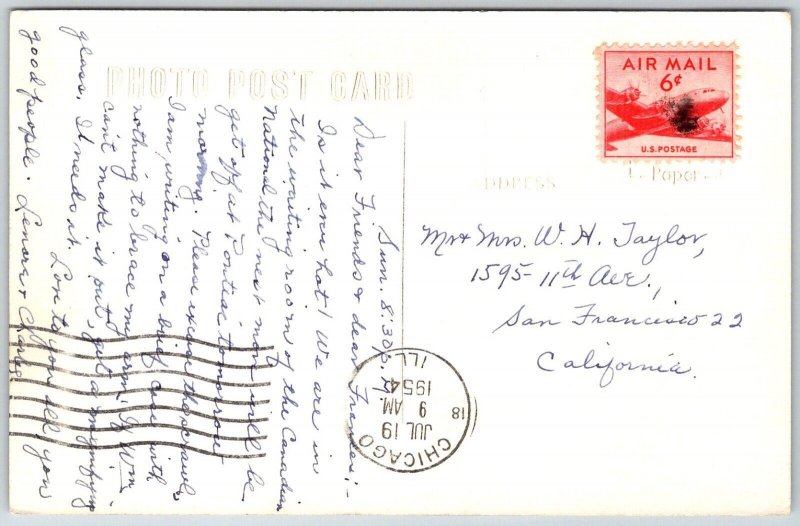 PHOTO POST CARD
Sun. 8:30 p.m.
Dear Friends & dear Frances:-
Is it ever hot! We are in
the waiting room of the Canadian
National the next stop will be
get off at Pontiac tomorrow
morning. Please excuse the scrawl,
I am writing on a brief case with
nothing to brace my arm. If Wm
can't make it out, get a magnifying
glass. It needs it. Love to you all, you
good people. Lenora & Charles
AIR MAIL
6¢
U.S. POSTAGE
ADDRESS
Paper
Mr & Mrs. W. H. Taylor,
1595-11th Ave.,
San Francisco 22
California.
CHICAGO
18
JUL 19
9 AM
1954
ILL